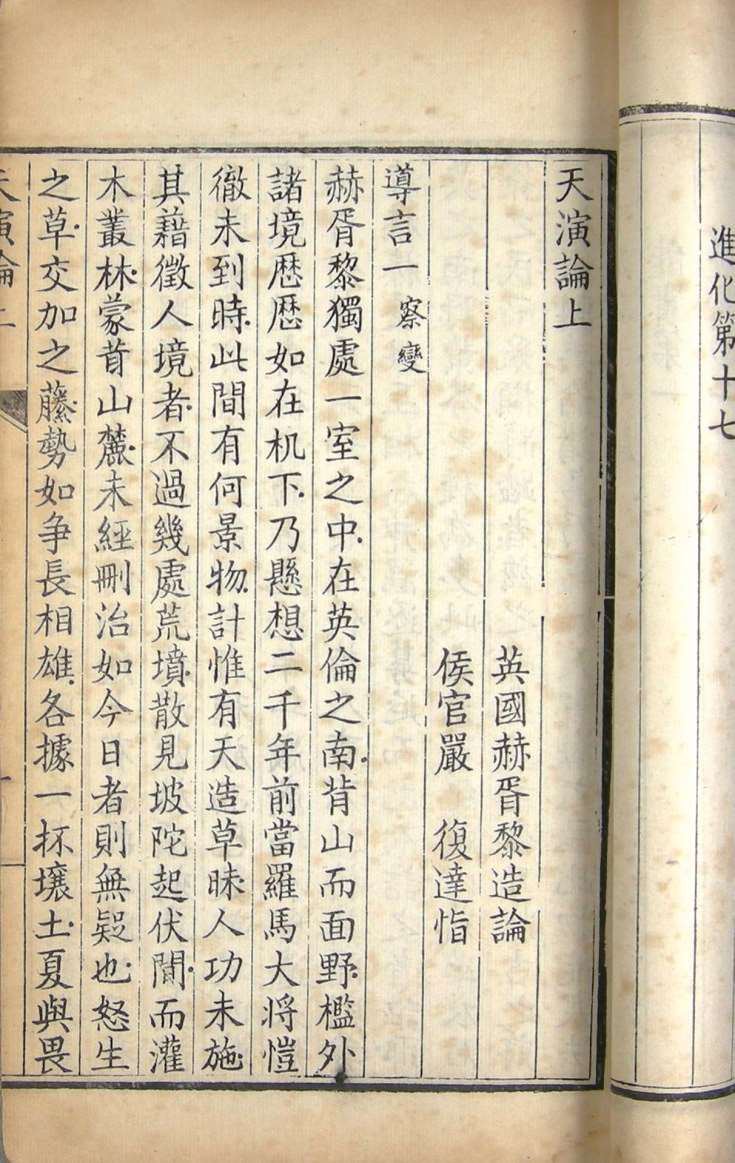 進化第十七
天演論上
英國赫胥黎造論
侯官嚴 復達恉
導言一 察變
赫胥黎獨處一室之中.在英倫之南.背山而面野.檻外
諸境歷歷如在机下.乃懸想二千年前當羅馬大將愷
徹未到時.此間有何景物.計惟有天造草昧人功未施.
其藉徵人境者.不過幾處荒墳.散見坡陀起伏間.而灌
木叢林.蒙茸山麓.未經刪治如今日者則無疑也.怒生
之草.交加之藤.勢如爭長相雄.各據一抔壤土.夏與畏
天演論上
一